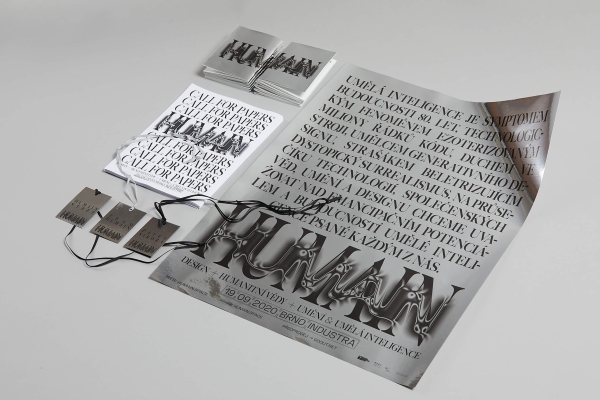 HUMAIN
CALL FOR PAPERS
CALL FOR PAPERS
CALL FOR PAPERS
HUMAIN
CALL FOR PAPERS
CALL FOR PAPERS
CALL FOR PAPERS
CALL FOR PAPERS
HUMAIN
HUMAIN
HUMAIN
UMĚLÁ INTELIGENCE JE SYMPTOMEM
BUDOUCNOSTI 80. LET, TECHNOLOGIC-
KÝM FENOMÉNEM EZOTERIZOVANÝM
MILIONY ŘÁDKŮ KÓDU, DUCHEM VE
STROJI, UMĚLCEM GENERATIVNÍHO DE-
SIGNU, STRAŠÁKEM BELETRIZUJÍCÍM
DYSTOPICKÝ SURREALISMUS. NA PRŮSE-
ČÍKU TECHNOLOGIÍ, SPOLEČENSKÝCH
VĚD, UMĚNÍ A DESIGNU CHCEME UVA-
ŽOVAT NAD EMANCIPAČNÍM POTENCIÁ-
LEM A BUDOUCNOSTÍ UMĚLÉ INTELI-
GENCE PSANÉ KAŽDÝM Z NÁS.
HUMAIN
DESIGN + HUMANITNÍ VĚDY + UMĚNÍ & UMĚLÁ INTELIGENCE
19.09.2020, BRNO, INDUSTRA